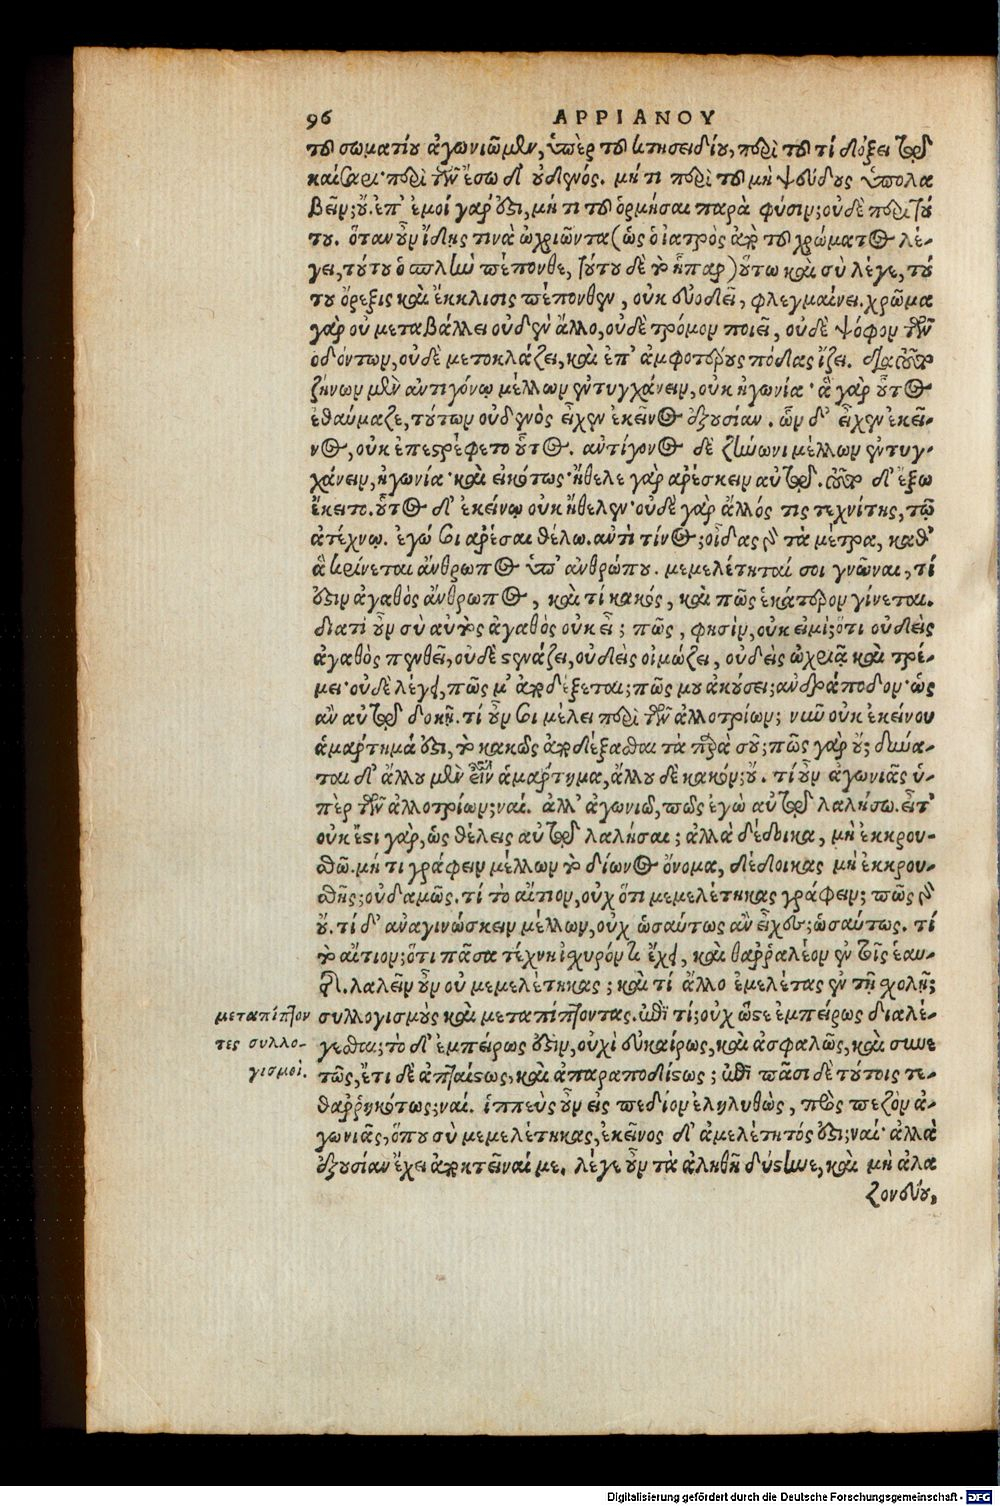 96 ΑΡΡΙΑΝΟΥ
τοῦ σωματίου ἀγωνιῶμεν, ὑπὲρ τοῦ κτησειδίου, περὶ τοῦ τί δόξει τῷ
καίσαρι· περὶ τῶν ἔσω δ' οὐδενός. μή τι περὶ τοῦ μὴ ψεύδους ὑπολα
βεῖν; οὔ. ἐπ' ἐμοί γάρ ἐστι, μή τι τοῦ ὁρμῆσαι παρὰ φύσιν; οὐδὲ περὶ τού
του. ὅταν οὖν ἴδῃς τινὰ ὠχριῶντα (ὡς ὁ ἰατρὸς ἀπὸ τοῦ χρώματος λέ-
γει, τούτου ὁ σπλὴν πέπονθε, τούτου δὲ τὸ ἧπαρ) οὕτω καὶ σὺ λέγε, τού
του ὄρεξις καὶ ἔκκλισις πέπονθεν, οὐκ εὐοδεῖ, φλεγμαίνει. χρῶμα
γὰρ οὐ μεταβάλλει οὐδὲν ἄλλο, οὐδὲ τρόμον ποιεῖ, οὐδὲ ψόφον τῶν
ὀδόντων, οὐδὲ μετοκλάζει, καὶ ἐπ' ἀμφοτέρους πόδας ἵζει. διὰ τοῦτο
ζήνων μὲν ἀντιγόνῳ μέλλων ἐντυγχάνειν, οὐκ ἠγωνία· ἃ γὰρ οὗτος
ἐθαύμαζε, τούτων οὐδενὸς εἶχεν ἐκεῖνος ἐξουσίαν. ὧν δ' εἶχεν ἐκεῖ-
νος, οὐκ ἐπεστρέφετο οὗτος. ἀντίγονος δὲ ζήνωνι μέλλων ἐντυγ-
χάνειν, ἠγωνία· καὶ εἰκότως· ἤθελε γὰρ ἀρέσκειν αὐτῷ. τοῦτο δ' ἔξω
ἔκειτο. οὗτος δ' ἐκείνῳ οὐκ ἤθελεν· οὐδὲ γὰρ ἄλλός τις τεχνίτης, τῷ
ἀτέχνῳ. ἐγώ σοι ἀρέσαι θέλω. ἀντὶ τίνος; οἶδας γὰρ τὰ μέτρα, καθ'
ἃ κρίνεται ἄνθρωπος ὑπ' ἀνθρώπου. μεμελέτηταί σοι γνῶναι, τί
ἐστιν ἀγαθὸς ἄνθρωπος, καὶ τί κακός, καὶ πῶς ἑκάτερον γίνεται.
διατί οὖν σὺ αὐτὸς ἀγαθὸς οὐκ εἶ; πῶς, φησὶν, οὐκ εἰμί; ὅτι οὐδεὶς
ἀγαθὸς πενθεῖ, οὐδὲ στενάζει, οὐδεὶς οἰμώζει, οὐδεὶς ὠχριᾷ καὶ τρέ-
μει· οὐδὲ λέγει, πῶς μ' ἀποδέξεται; πῶς μου ἀκούσει; ἀνδράποδον· ὡς
ἂν αὐτῷ δοκῇ. τί οὖν σοι μέλει περὶ τῶν ἀλλοτρίων; νῦν οὐκ ἐκείνου
ἁμάρτημά ἐστι, τὸ κακῶς ἀποδέξασθαι τὰ παρὰ σοῦ; πῶς γὰρ οὔ; δύνα-
ται δ' ἄλλου μὲν εἶναι ἁμάρτημα, ἄλλου δὲ κακόν; οὔ. τί οὖν ἀγωνιᾷς ὑ-
πὲρ τῶν ἀλλοτρίων; ναί. ἀλλ' ἀγωνιῶ, πῶς ἐγὼ αὐτῷ λαλήσω. εἶτ'
οὐκ ἔστι γὰρ, ὡς θέλεις αὐτῷ λαλῆσαι; ἀλλὰ δέδοικα, μὴ ἐκκρου-
σθῶ. μή τι γράφειν μέλλων τὸ δίωνος ὄνομα, δέδοικας μὴ ἐκκρου-
σθῇς; οὐδαμῶς. τί τὸ αἴτιον, οὐχ ὅτι μεμελέτηκας γράφειν; πῶς γὰρ
οὔ. τί δ' ἀναγινώσκειν μέλλων, οὐχ ὡσαύτως ἂν εἶχες; ὡσαύτως. τί
τὸ αἴτιον; ὅτι πᾶσα τέχνη ἰσχυρόν τι ἔχει, καὶ θαῤῥαλέον ἐν τοῖς ἑαυ-
τῆς. λαλεῖν οὖν οὐ μεμελέτηκας; καὶ τί ἄλλο ἐμελέτας ἐν τῇ σχολῇ;
μεταπίπτον συλλογισμοὺς καὶ μεταπίπτοντας. ἐπὶ τί; οὐχ ὥστε ἐμπείρως διαλέ-
τες συλλο- γεσθαι; τὸ δ' ἐμπείρως ἐστὶν, οὐχὶ εὐκαίρως, καὶ ἀσφαλῶς, καὶ συνε
γισμοί. τῶς, ἔτι δὲ ἀπταίστως, καὶ ἀπαραποδίστως; ἐπὶ πᾶσι δὲ τούτοις τε-
θαῤῥηκότως; ναί. ἱππεὺς οὖν εἰς πεδίον ἐληλυθὼς, πρὸς πεζὸν ἀ-
γωνιᾷς, ὅπου σὺ μεμελέτηκας, ἐκεῖνος δ' ἀμελέτητός ἐστι; ναί· ἀλλὰ
ἐξουσίαν ἔχει ἀποκτεῖναί με. λέγε οὖν τὰ ἀληθῆ δύστηνε, καὶ μὴ ἀλα
ζονεύου,
Digitalisierung gefördert durch die Deutsche Forschungsgemeinschaft - DFG